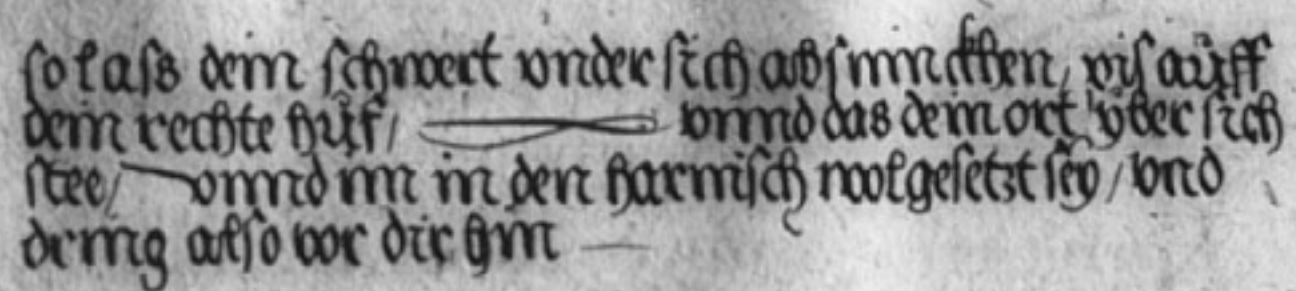 so lass dein schwert vnder sich absinnckhen, vis auff
dein rechte hüf / vnnd das dein ort yber sich
stee / vnnd im in den harnisch wolgesetzt sey / vnd
dring also vor dir hin